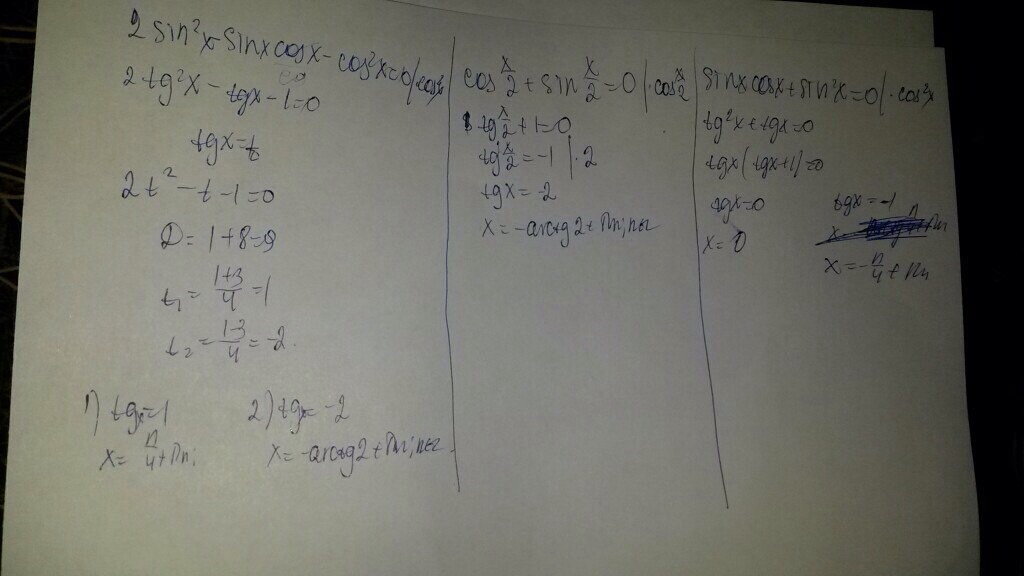 2 sin²x - sinx cosx - cos²x = 0 | cos²x
2 tg²x - tgx - 1 = 0
tgx = t
2t² - t - 1 = 0
D = 1 + 8 = 9
t₁ = (1+3)/4 = 1
t₂ = (1-3)/4 = -2
1) tgx = 1
x = π/4 + πn;
2) tgx = -2
x = -arctg2 + πn; n∈z
cos x/2 + sin x/2 = 0 | : cos x/2
tg x/2 + 1 = 0
tg x/2 = -1 | · 2
tgx = -2
x = -arctg2 + πn; n∈z
sinx cosx + sin²x = 0 | : cos²x
tg²x + tgx = 0
tgx (tgx + 1) = 0
tgx = 0
x = 0
tgx = -1
x = -π/4 + πn